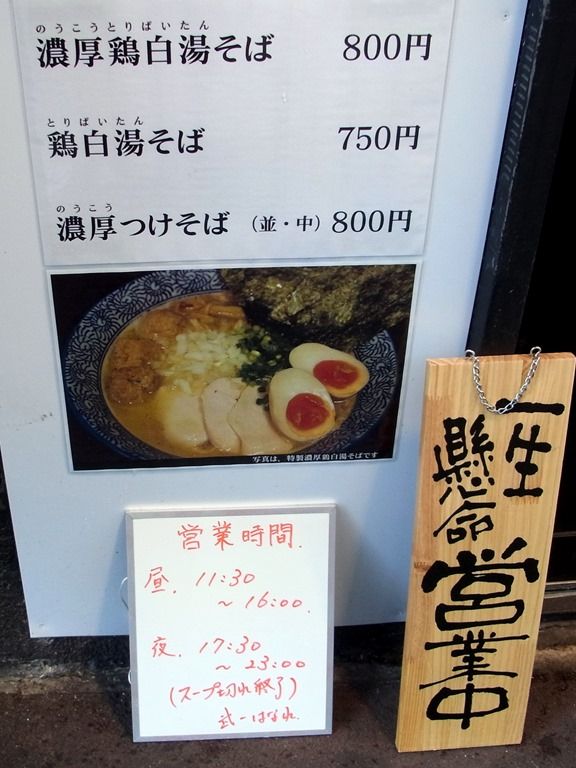 のうこうとりぱいたん
濃厚鶏白湯そば 800円
とりぱいたん
鶏白湯そば 750円
のうこう
濃厚つけそば (並・中) 800円
写真は、特製濃厚鶏白湯そばです
営業時間.
昼. 11:30
～16:00.
夜. 17:30
～23:00
(スープ切れ終了)
武一はなれ.
一生
懸命
営業中